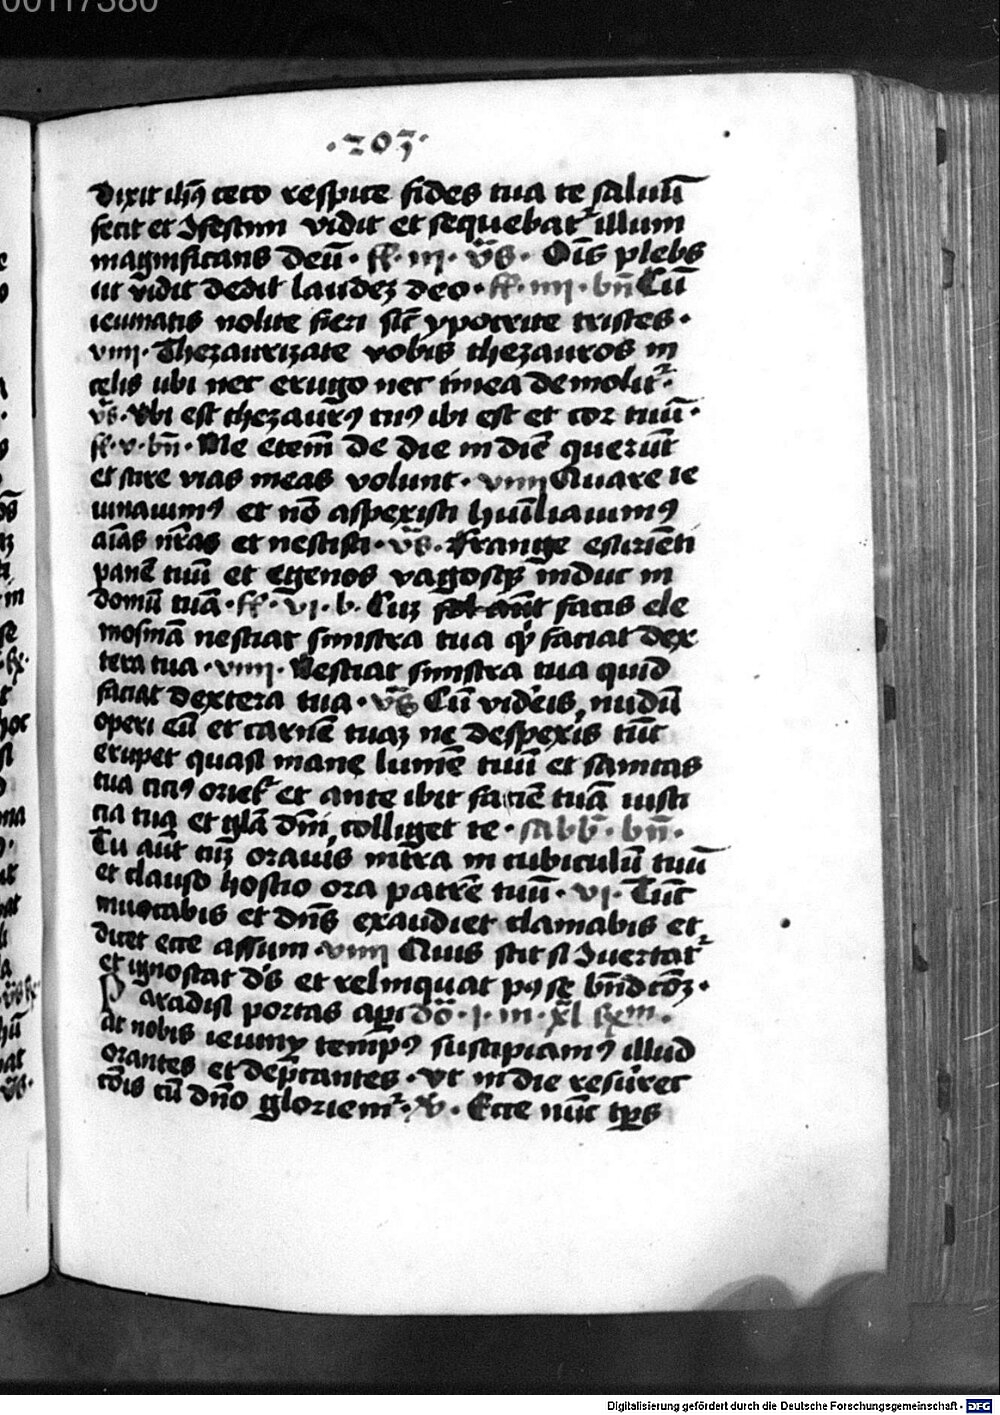 00117380
·203·
Dixit ihꝰ ceco respice fides tua te saluū
fecit et Jfestim vidit et sequebat̉ illum
magnificans deū · ff · iii · v̄s · Oīs plebs
ut vidit dedit laudeꝫ deo · ff · iiii · bn̄ Cū
ieiunatis nolite fieri sic̄ ypocrite tristes ·
viiii · Thezaurizate vobis thezauros in
celis ubi nec erugo nec tinea demolit̉ ·
v̄s · Vbi est thezaurꝰ tuꝰ ibi est et cor tuū ·
ff · v · bn̄ · Me etem̄ de die in diē querūt
et scire vias meas volunt · viiii Quare ie
iunauimꝰ et nō aspexisti hūiliauimꝰ
aīas nr̄as et nescisti · v̄s · Frange esuriēti
panē tuū et egenos vagosqꝫ induc in
domū tuā · ff · vi · b · Cuꝫ aūt facis ele
mosinā nesciat sinistra tua qͥ faciat dex
tera tua · viiii · Nesciat sinistra tua quid
faciat dextera tua · v̄s Cū videis nudū
operi eū et carnē tuaꝫ ne despexis tūc
erūpet quasi mane lumē tuū et sanitas
tua citiꝰ oriet̉ et ante ibit faciē tuā iusti
cia tua et glā dn̄i colliget te · sabb̄ · bn̄ ·
Tu aūt cuꝫ oraūis intra in cubiculū tuū
et clauso hostio ora patrē tuū · vi · Tūc
inuocabis et dn̄s exaudiet clamabis et
dicet ecce assum · viiii Quis scit si Juertat̉
et ignoscat d̄s et relinquat pꝰ se bn̄dcōꝫ ·
Paradisi portas apͥt dō · i · in · xl
at nobis ieiunij tempꝰ suscipiamꝰ illud
orantes et dep̄cantes · vt in die resūrec
cōis cū dn̄o gloriem̉ · Ꝟ · Ecce nūc tp̄s
Digitalisierung gefördert durch die Deutsche Forschungsgemeinschaft - DFG